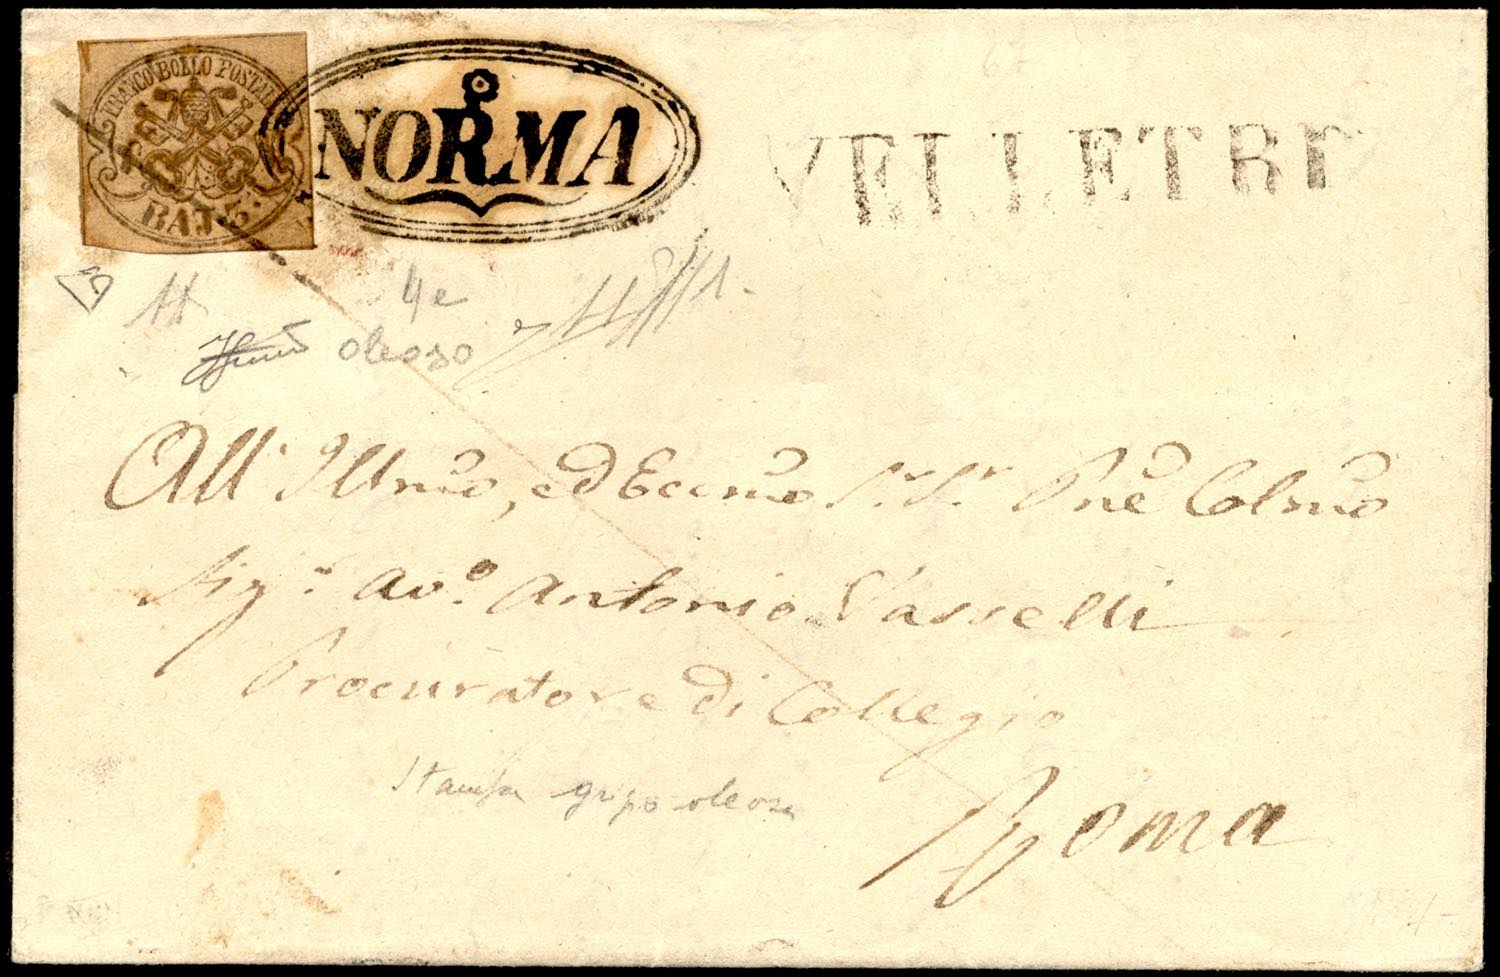 FRANCO BOLLO POSTALE
BAJ. 3.
NORMA
VELLETRI
67
4e
oleoso
All' Illmo, ed Eccmo S.r S.r Prne Colmo
Sig.r Avo. Antonio Vasselli
Procuratore di Collegio
Stampa grigio oleosa
Roma